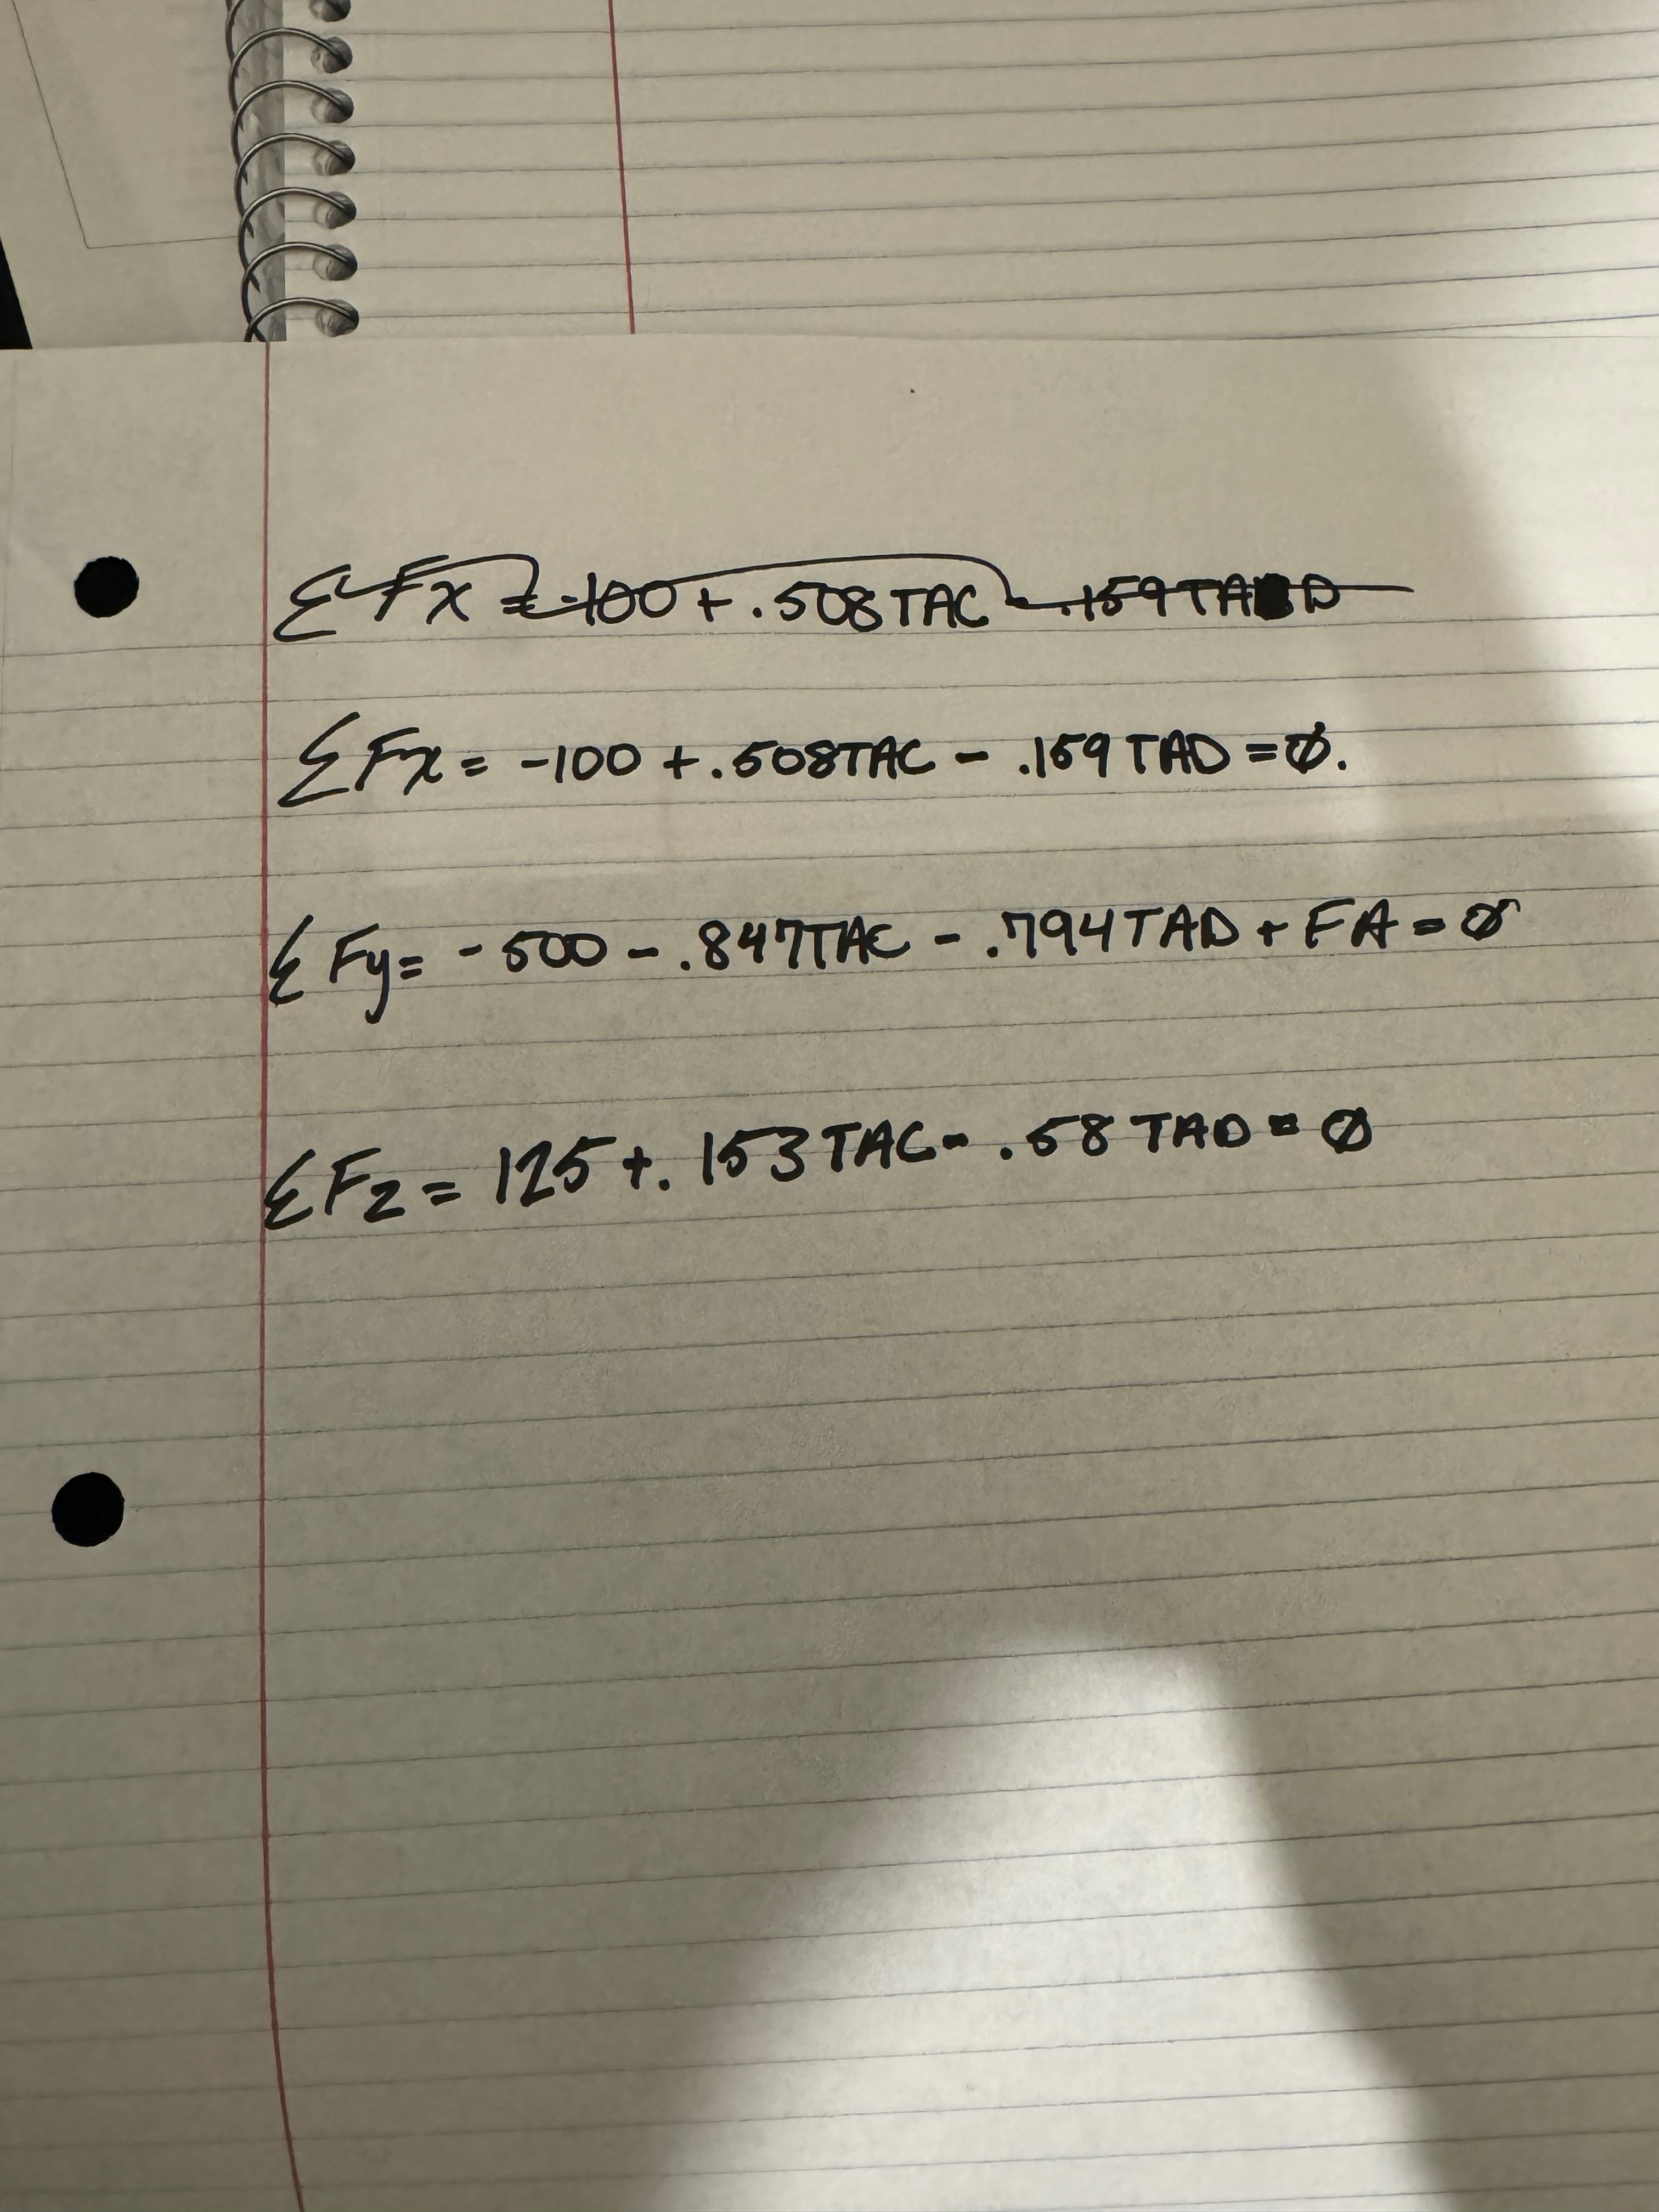 ΣFx = -100 + .508TAC - .159TAD
ΣFx = -100 + .508TAC - .159 TAD = Ø.
ΣFy = -500 - .847TAC - .794TAD + FA = Ø
ΣFz = 125 + .153TAC - .58 TAD = Ø